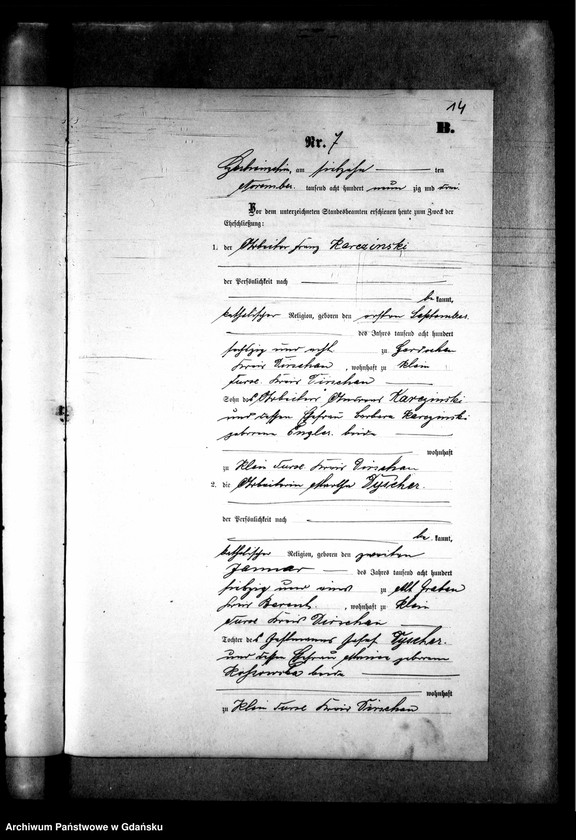 14
B.
Nr. 7
am siebzehn ten
November tausend acht hundert neun zig und drei
Vor dem unterzeichneten Standesbeamten erschienen heute zum Zweck der
Eheschließung:
1. der Arbeiter Franz Karczinski
der Persönlichkeit nach
be kannt,
katholischer Religion, geboren den ersten September
des Jahres tausend acht hundert
sechzig und acht zu
Kreis Dirschau, wohnhaft zu Klein
Turse Kreis Dirschau
Sohn des Arbeiters Karczinski
und dessen Ehefrau Barbara Karczinski
geborene Engler beide
wohnhaft
zu Klein Turse Kreis Dirschau
2. die Arbeiterin Martha Tyscher
der Persönlichkeit nach
be kannt,
katholischer Religion, geboren den zweiten
Januar des Jahres tausend acht hundert
siebzig und eins zu Alt Grabau
Kreis Berent, wohnhaft zu Klein
Turse Kreis Dirschau
Tochter des Josef Tyscher
und dessen Ehefrau geborene
beide
wohnhaft
zu Klein Turse Kreis Dirschau
Archiwum Państwowe w Gdańsku